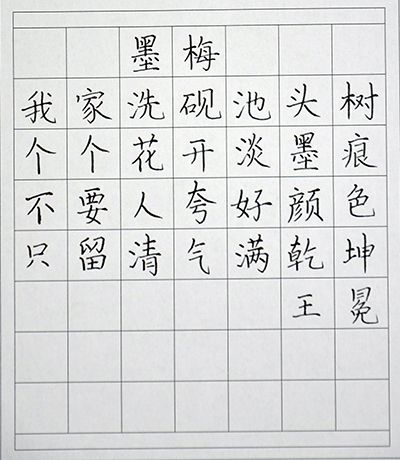 墨梅
我家洗砚池头树
个个花开淡墨痕
不要人夸好颜色
只留清气满乾坤
王冕